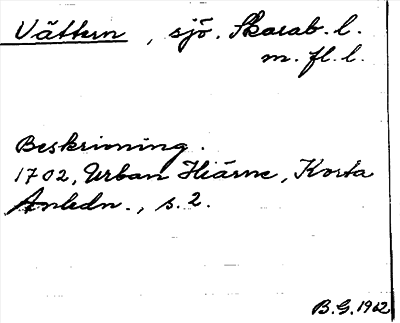 Vättern, sjö. Skarab. l.
m. fl. l.
Beskrivning.
1702, Urban Hiärne, Korta
Anledn., s. 2.
B.G. 1962